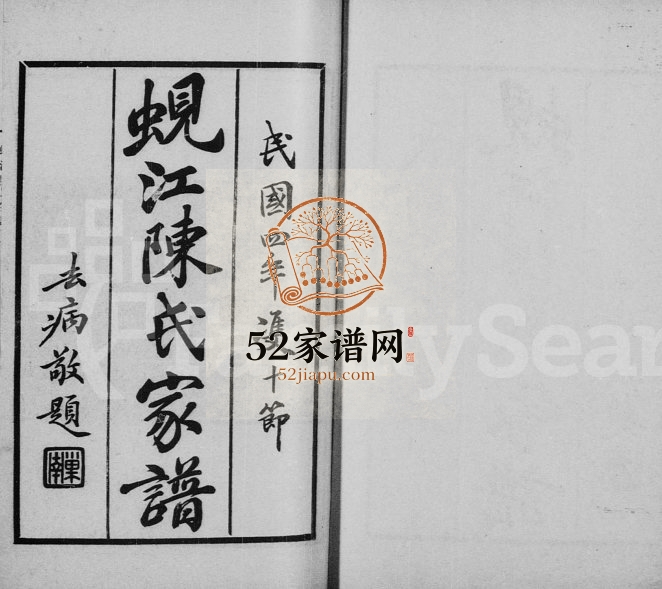 民國四年雙十節
蜆江陳氏家譜
去病敬題
52家谱网
52jiapu.com
FamilySear